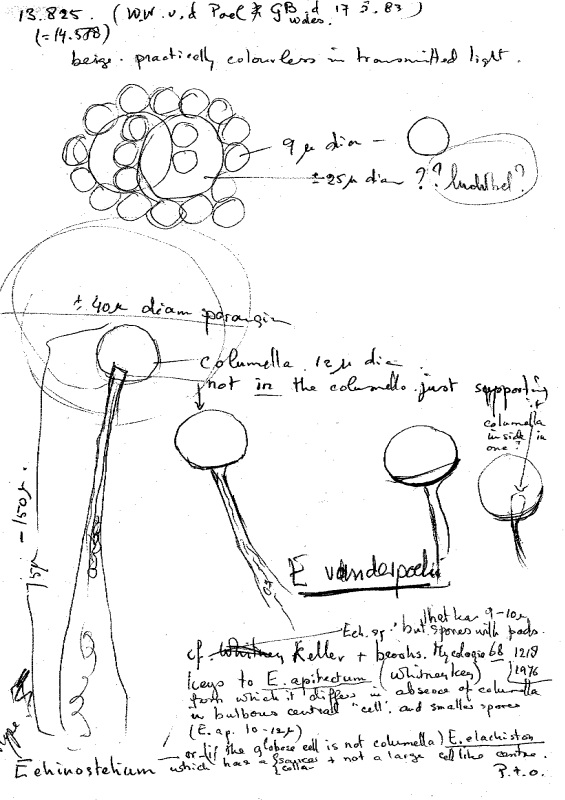 13.825 (W.W. v. d Poel & GB d 17 5. 83)
(= 14.588)
beige. practically colourless in transmitted light.
9 µ dia -
± 25 µ dia ??
± 40 µ diam sporangia
columella. 12 µ dia
not in the columella. just supporting it
columella
inside in
one?
150 -
E vanderpoelii
that has 9-10µ
Ech. sp. but spores with pads.
cf. Whitney Keller + Brooks. Mycologia 68 1218
1976
keys to E. apitectum (Whitney key)
from which it differs in absence of columella
in bulbous central "cell". and smaller spores
(E. ap. 10-12µ)
or (if the globose cell is not columella) E. elachiston
Echinostelium which has a + not a large cell like centre.
collar
Type
P.t.o.